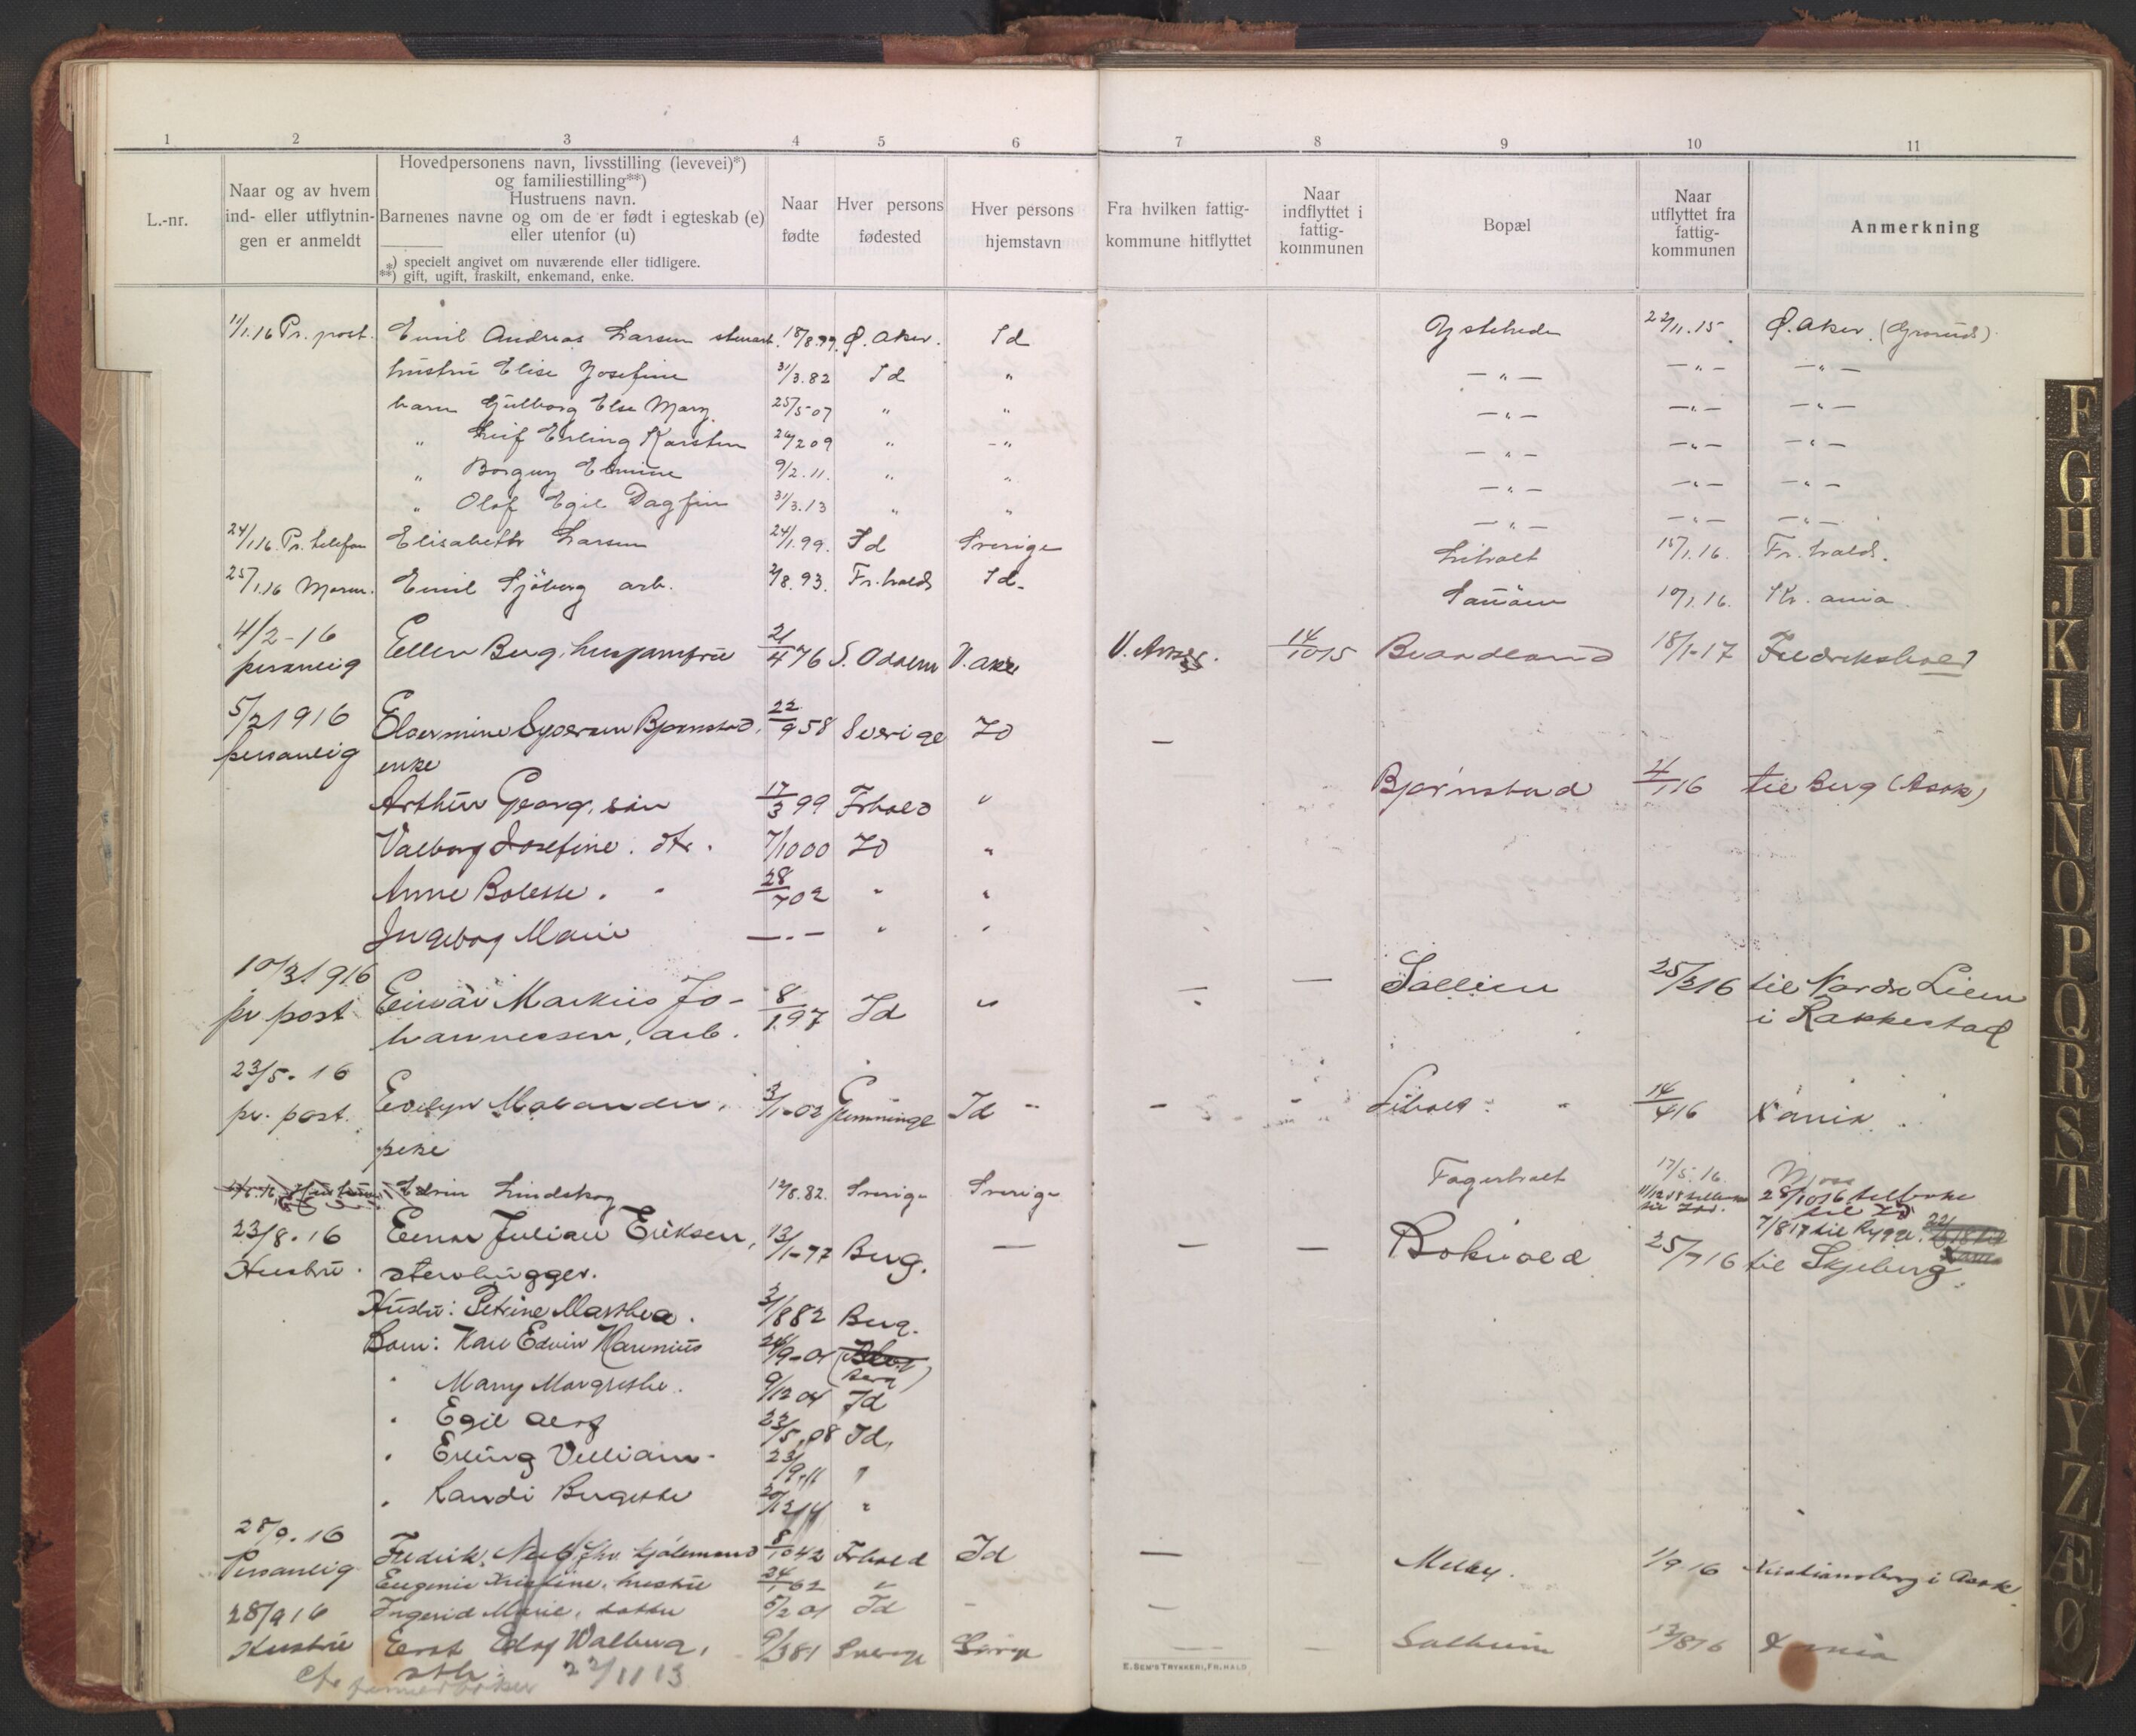 1 2 3 4 5 6 7 8 9 10 11
L.-nr.
Naar og av hvem
ind- eller utflytnin-
gen er anmeldt
Hovedpersonens navn, livsstilling (levevei)*)
og familiestilling**)
Hustruens navn.
Barnenes navne og om de er født i egteskab (e)
eller utenfor (u)
*) specielt angivet om nuværende eller tidligere.
**) gift, ugift, fraskilt, enkemand, enke.
Naar
fødte
Hver persons
fødested
Hver persons
hjemstavn
Fra hvilken fattig-
kommune hitflyttet
Naar
indflyttet i
fattig-
kommunen
Bopæl
Naar
utflyttet fra
fattig-
kommunen
Anmerkning
11/1.16 Pr. post. Emil Andreas Larsen stenarb. 18/8.79. Ø. Aker. Id Ystehede 22/11.15. Ø. Aker. (Grorud)
hustru Elise Josefine 31/3.82 Id " — " — — " — — " —
barn Gulborg Else Mary 25/5 07 " " — " — — " — — " —
" Leif Erling Karsten 26/2 09 " " — " — — " — — " —
" Borguy 9/2.11. " " — " — — " — — " —
" Olof Egil Dagfin 31/3.13 " " — " — — " — — " —
24/1.16. Pr. telefon Elisabeth Larsen 24/1.99. Id Sverige Liholt 15/1.16. Fr.hald.
25/1.16 Moren. Emil Sjöberg arb. 2/8.93. Fr.hald Id. 10/1.16. Kr.ania.
4/2-16 personlig Ellen Berg, husjomfru 21/4 76 S. Odalen V. Aker V. Aker. 14/10 15 18/1-17 Fredrikshald
5/2 1916 personlig Bjørnstad, 22/9 58 Sverige Id —
enke
Arthur Georg, søn 17/3 99 Frhald " Bjørnstad 4/1 16 til Berg (Asak)
Valborg Josefine. dtr. 7/10 00 Id "
Anne Bolette. " 28/7 02 " "
Ingeborg Marie — . — " "
10/3 1916 pr post Einar Markus Jo- 8/1 97 Id " — — Sollien 25/3 16 til Nordre Lien
hannessen, arb. i Rakkestad
23/5. 16 pr. post. Evelyn 3/1-02 Id — Liholt 14/4 16 Kania.
pike
Edvin Lindskog 12/8.82. Sverige Sverige Fagerholt 17/5.16. Moss
28/10 16 tilbake
til Id
7/8 17 til Rygge.
23/8. 16 Hustru. Einar Julian Eriksen, 13/1-77 Berg. — — — Bokvold 25/7 16 til Skjeberg.
stenhugger.
Hustr: Petrine Marthea. 3/8 82 Berg.
Barn: Karl Edvin 24/9-01 (Berg)
" Mary Margrethe. 9/12 04 Id
" Egil Alf 23/5.08 Id.
" Erling Villiam. 23/9.11 "
" Randi Birgitte 20/12 14 "
28/9. 16 Personlig Fredrik 8/10 42 Frhald Id — Melby. 1/9 16 Kristiansborg i Asak.
Eugenie Kristine, hustru 24/1 62 "
Ingerid Marie, datter 5/2 01 Id —
28/9 16 Hustru Walberg, 9/3 81 Sverige Sverige — — Solheim 13/8 16 Kania
stenh.
Cfr 22/11 13
E. SEM'S TRYKKERI, FR.HALD
F
G
H
J
K
L
M
N
O
P
Q
R
S
T
U
W
X
Y
Z
Æ
Ø